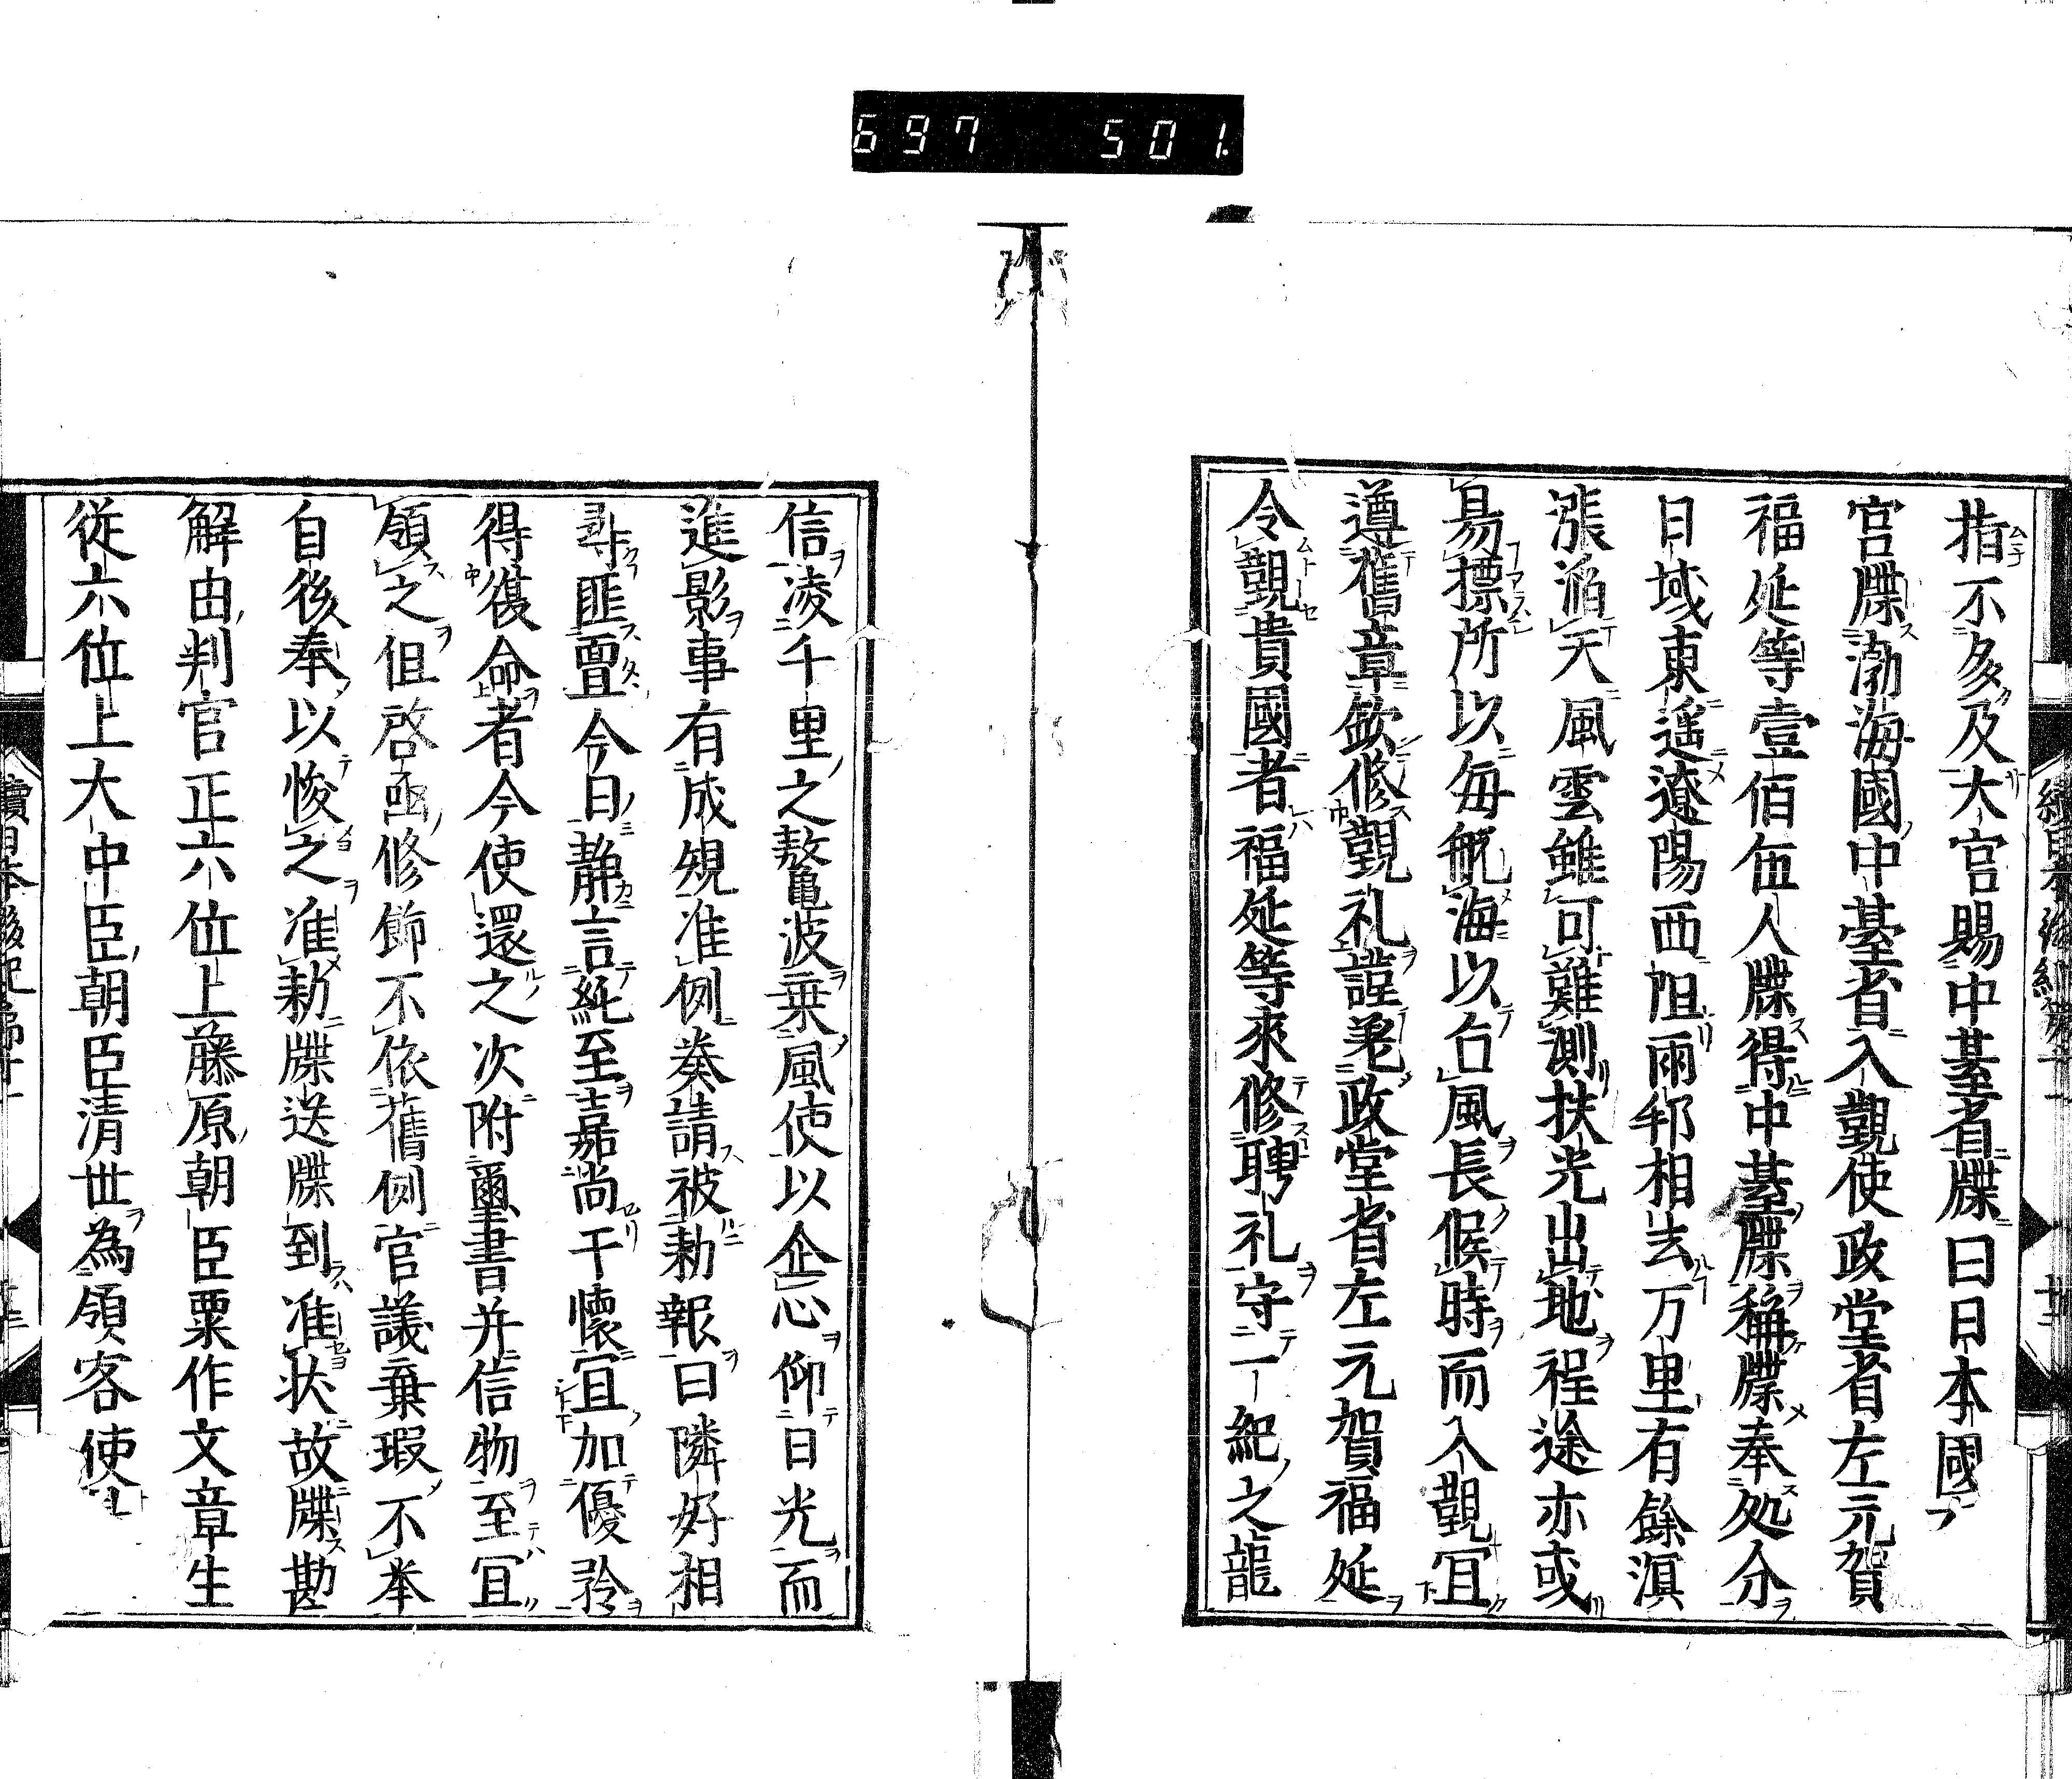 697 501.
指不多及大官賜中䑓省牒曰日本國
官牒渤海國中臺省入覲使政堂省左元賀
福延等壹佰伍人牒得中䑓牒稱牒奉処分
日域東遥遼陽西阻兩邦相去万里有餘溟
漲滔天風雲雖可難測扶光出地程途亦或
易標所以毎航海以占風長候時而入覲宜
遵舊章欽修覲礼謹差政堂省左元賀福延
令覲貴國者福延等來修聘礼守一紀之龍
信凌千里之鼇波乗風使以企心仰日光而
進影事有成規准例奏請被勅報曰隣好相
尋匪亶今日静言純至嘉尚于懐宜加優矜
得復命者今使還之次附璽書并信物至宜
領之但啓凾修飾不依舊例官議棄瑕不挙
自後奉以悛之准勅牒送牒到准状故牒勘
解由判官正六位上藤原朝臣粟作文章生
従六位上大中臣朝臣清世為領客使